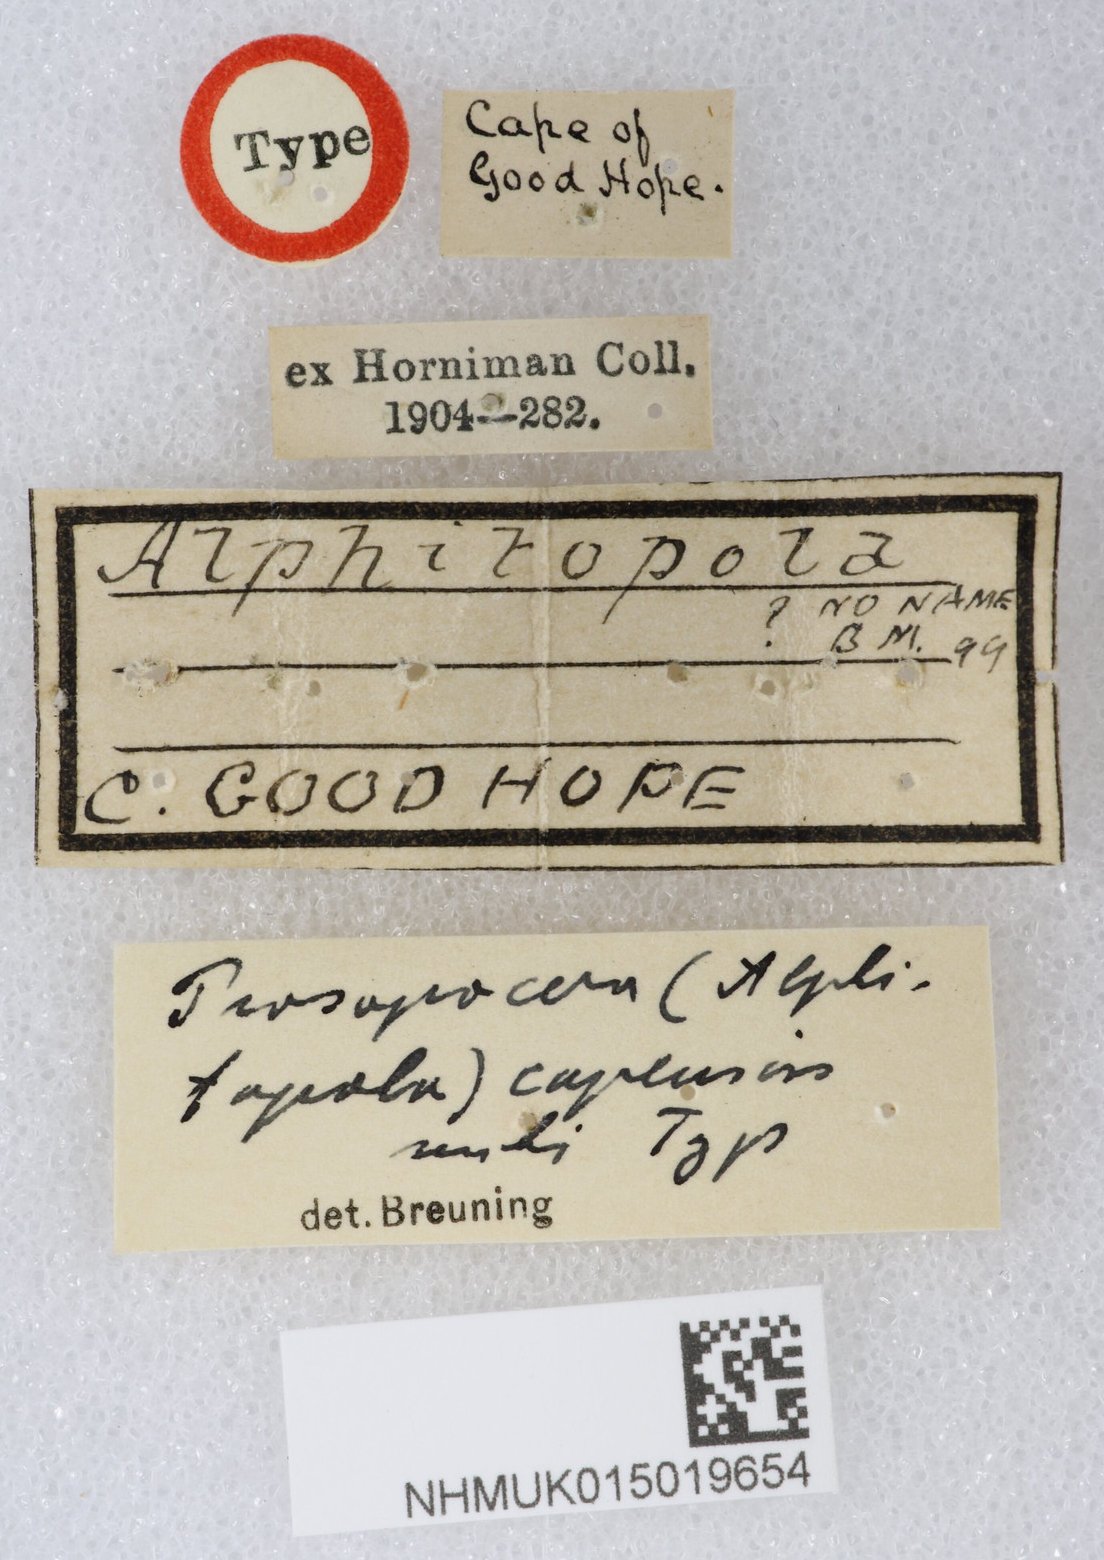 Type
Cape of
Good Hope.
ex Horniman Coll.
1904—282.
Alphitopola
? NO NAME
B M. 99
C. GOOD HOPE
Prosopocera (Alphi-
topola) capensis
mihi Typ
det. Breuning
NHMUK015019654